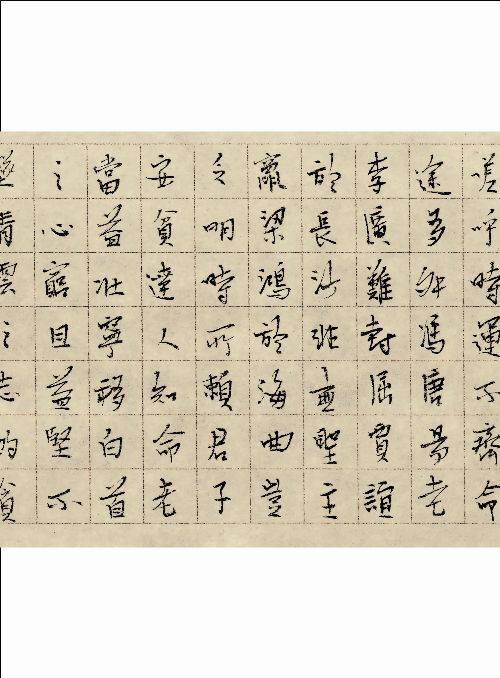 嗟呼時運不齊命
途多舛馮唐易老
李廣難封屈賈誼
於長沙非無聖主
竄梁鴻於海曲豈
乏明時所賴君子
安貧達人知命老
當益壯寧移白首
之心窮且益堅不
墜青雲之志酌貪